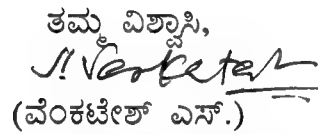 ತಮ್ಮ ವಿಶ್ವಾಸಿ,
S. Venkatesh
(ವೆಂಕಟೇಶ್ ಎಸ್.)